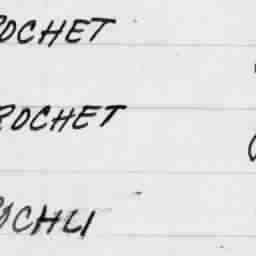 ROCHET
ROCHET
OCHLI